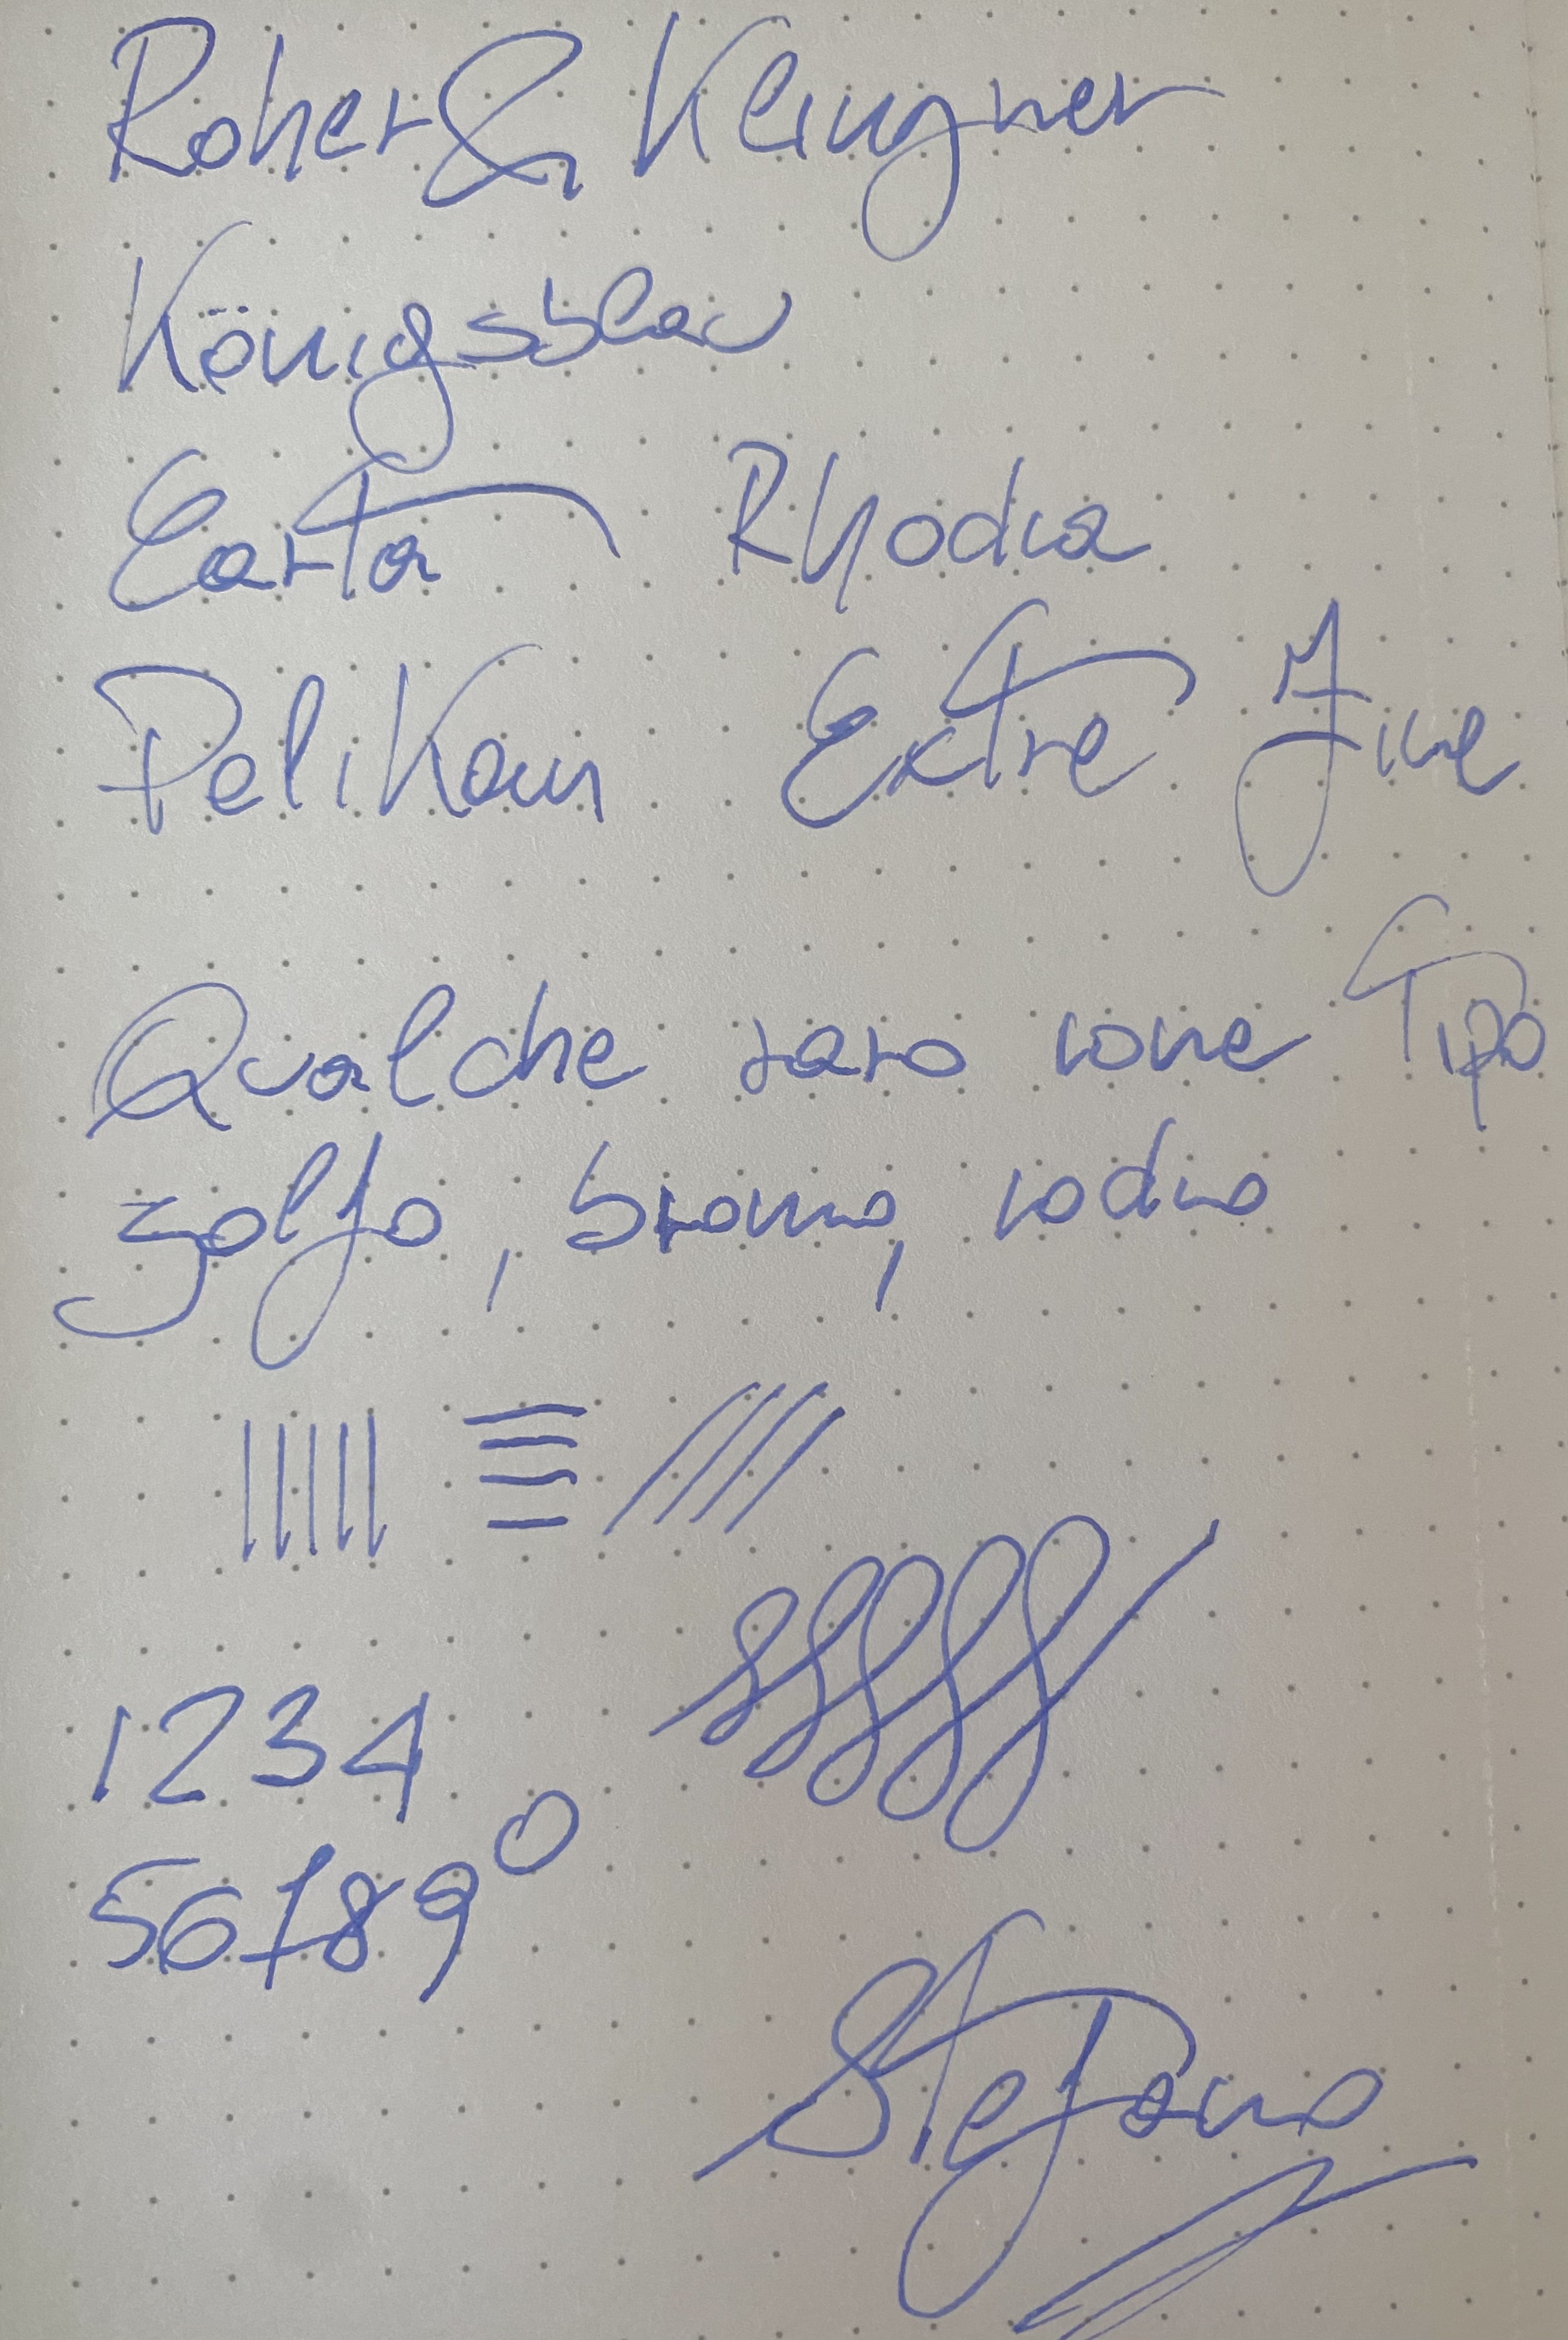 Roher & Klingner
Königsblau
Carta Rhodia
Pelikan Extra Fine
Qualche raro ione Tipo
zolfo, bromo, iodio
1234
567890
Stefano